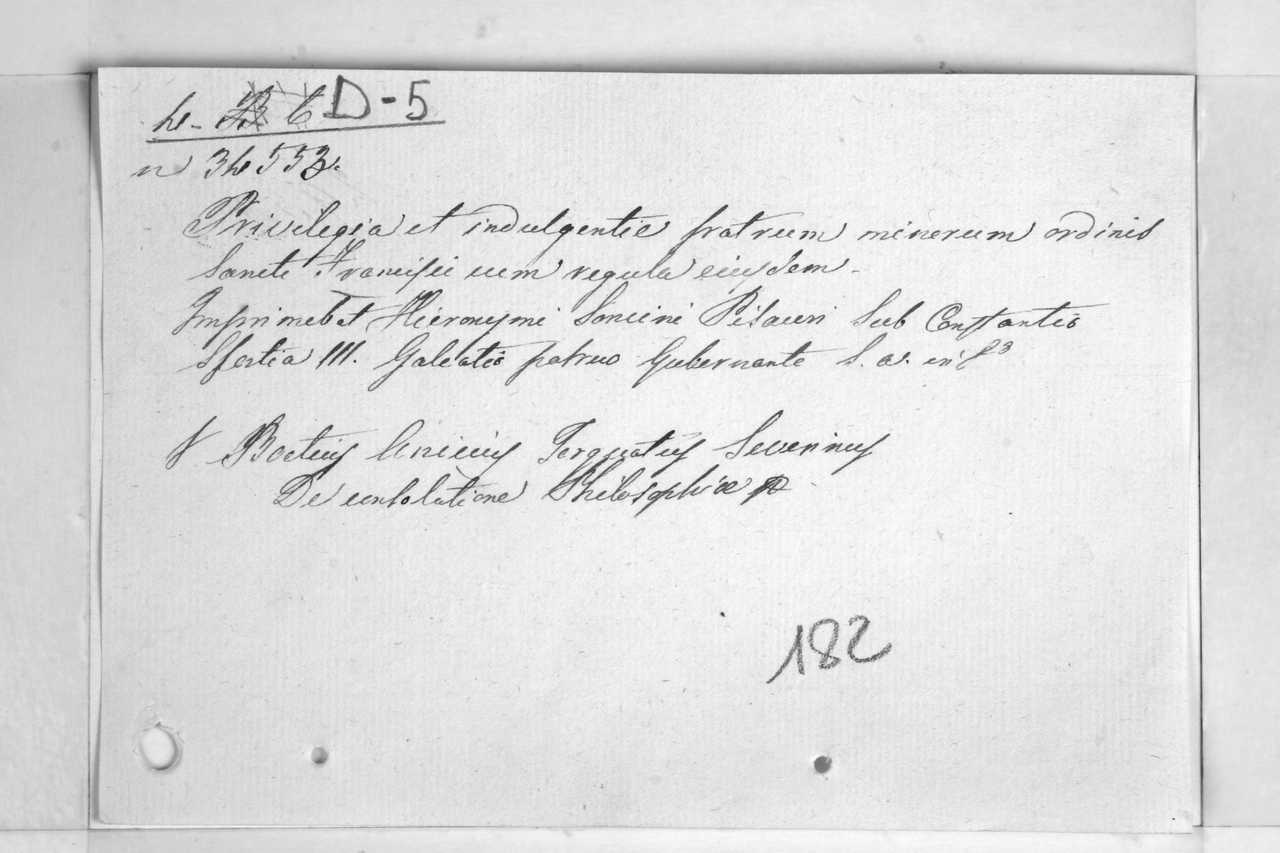 D-5
n 34553.
Privilegia et indulgentie fratrum minorum ordinis
Sancti Francisci cum regula eiusdem.
Imprimebat Hieronymi Soncini Pisauri Sub Constantio
Sfortia III. Galeatio patruo Gubernante S. a. in 8
Boetius Anicius Torquatus Severinus
De consolatione Philosophiæ
182